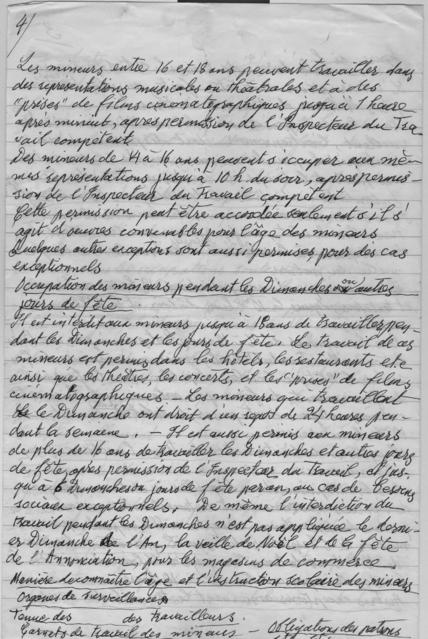 4/
Les mineurs entre 16 et 18 ans peuvent travailler dans
des représentations musicales ou théâtrales et à des
"prises" de films cinématographiques jusqu'à 1 heure
après minuit, après permission de l'Inspecteur du Tra-
vail compétent
Des mineurs de 4 à 16 ans peuvent s'occuper aux mê-
mes représentations jusqu'à 10 h du soir, après permis-
sion de l'Inspecteur du Travail compétent
Cette permission peut être accordée seulement s'il s'
agit d'œuvres convenables pour l'âge des mineurs
Quelques autres exceptions sont aussi permises pour des cas
exceptionnels
Occupation des mineurs pendant les Dimanches ou autres
jours de fête.
Il est interdit aux mineurs jusqu'à 18 ans de travailler pen-
dant les Dimanches et les jours de fête. Le travail de ces
mineurs est permis dans les hôtels, les restaurants etc
ainsi que les théâtres, les concerts, et les "prises" de films
cinématographiques – Les mineurs qui travaillent
le Dimanche ont droit d'un repos de 24 heures pen-
dant la semaine. – Il est aussi permis aux mineurs
de plus de 16 ans de travailler les Dimanches et autres jours
de fête, après permission de l'Inspecteur du Travail, et jus-
qu'à 6 dimanches ou jours de fête par an, au cas de besoins
sociaux exceptionnels. De même l'interdiction du
travail pendant les Dimanches n'est pas appliquée le derni-
er Dimanche de l'An, la veille de Noël et de la fête
de l'Annonciation, pour les magasins de commerce
Manière de connaître l'âge et l'instruction scolaire des mineurs
Organes de surveillance
Tenue des des travailleurs.
Carnets de travail des mineurs – Obligations des patrons